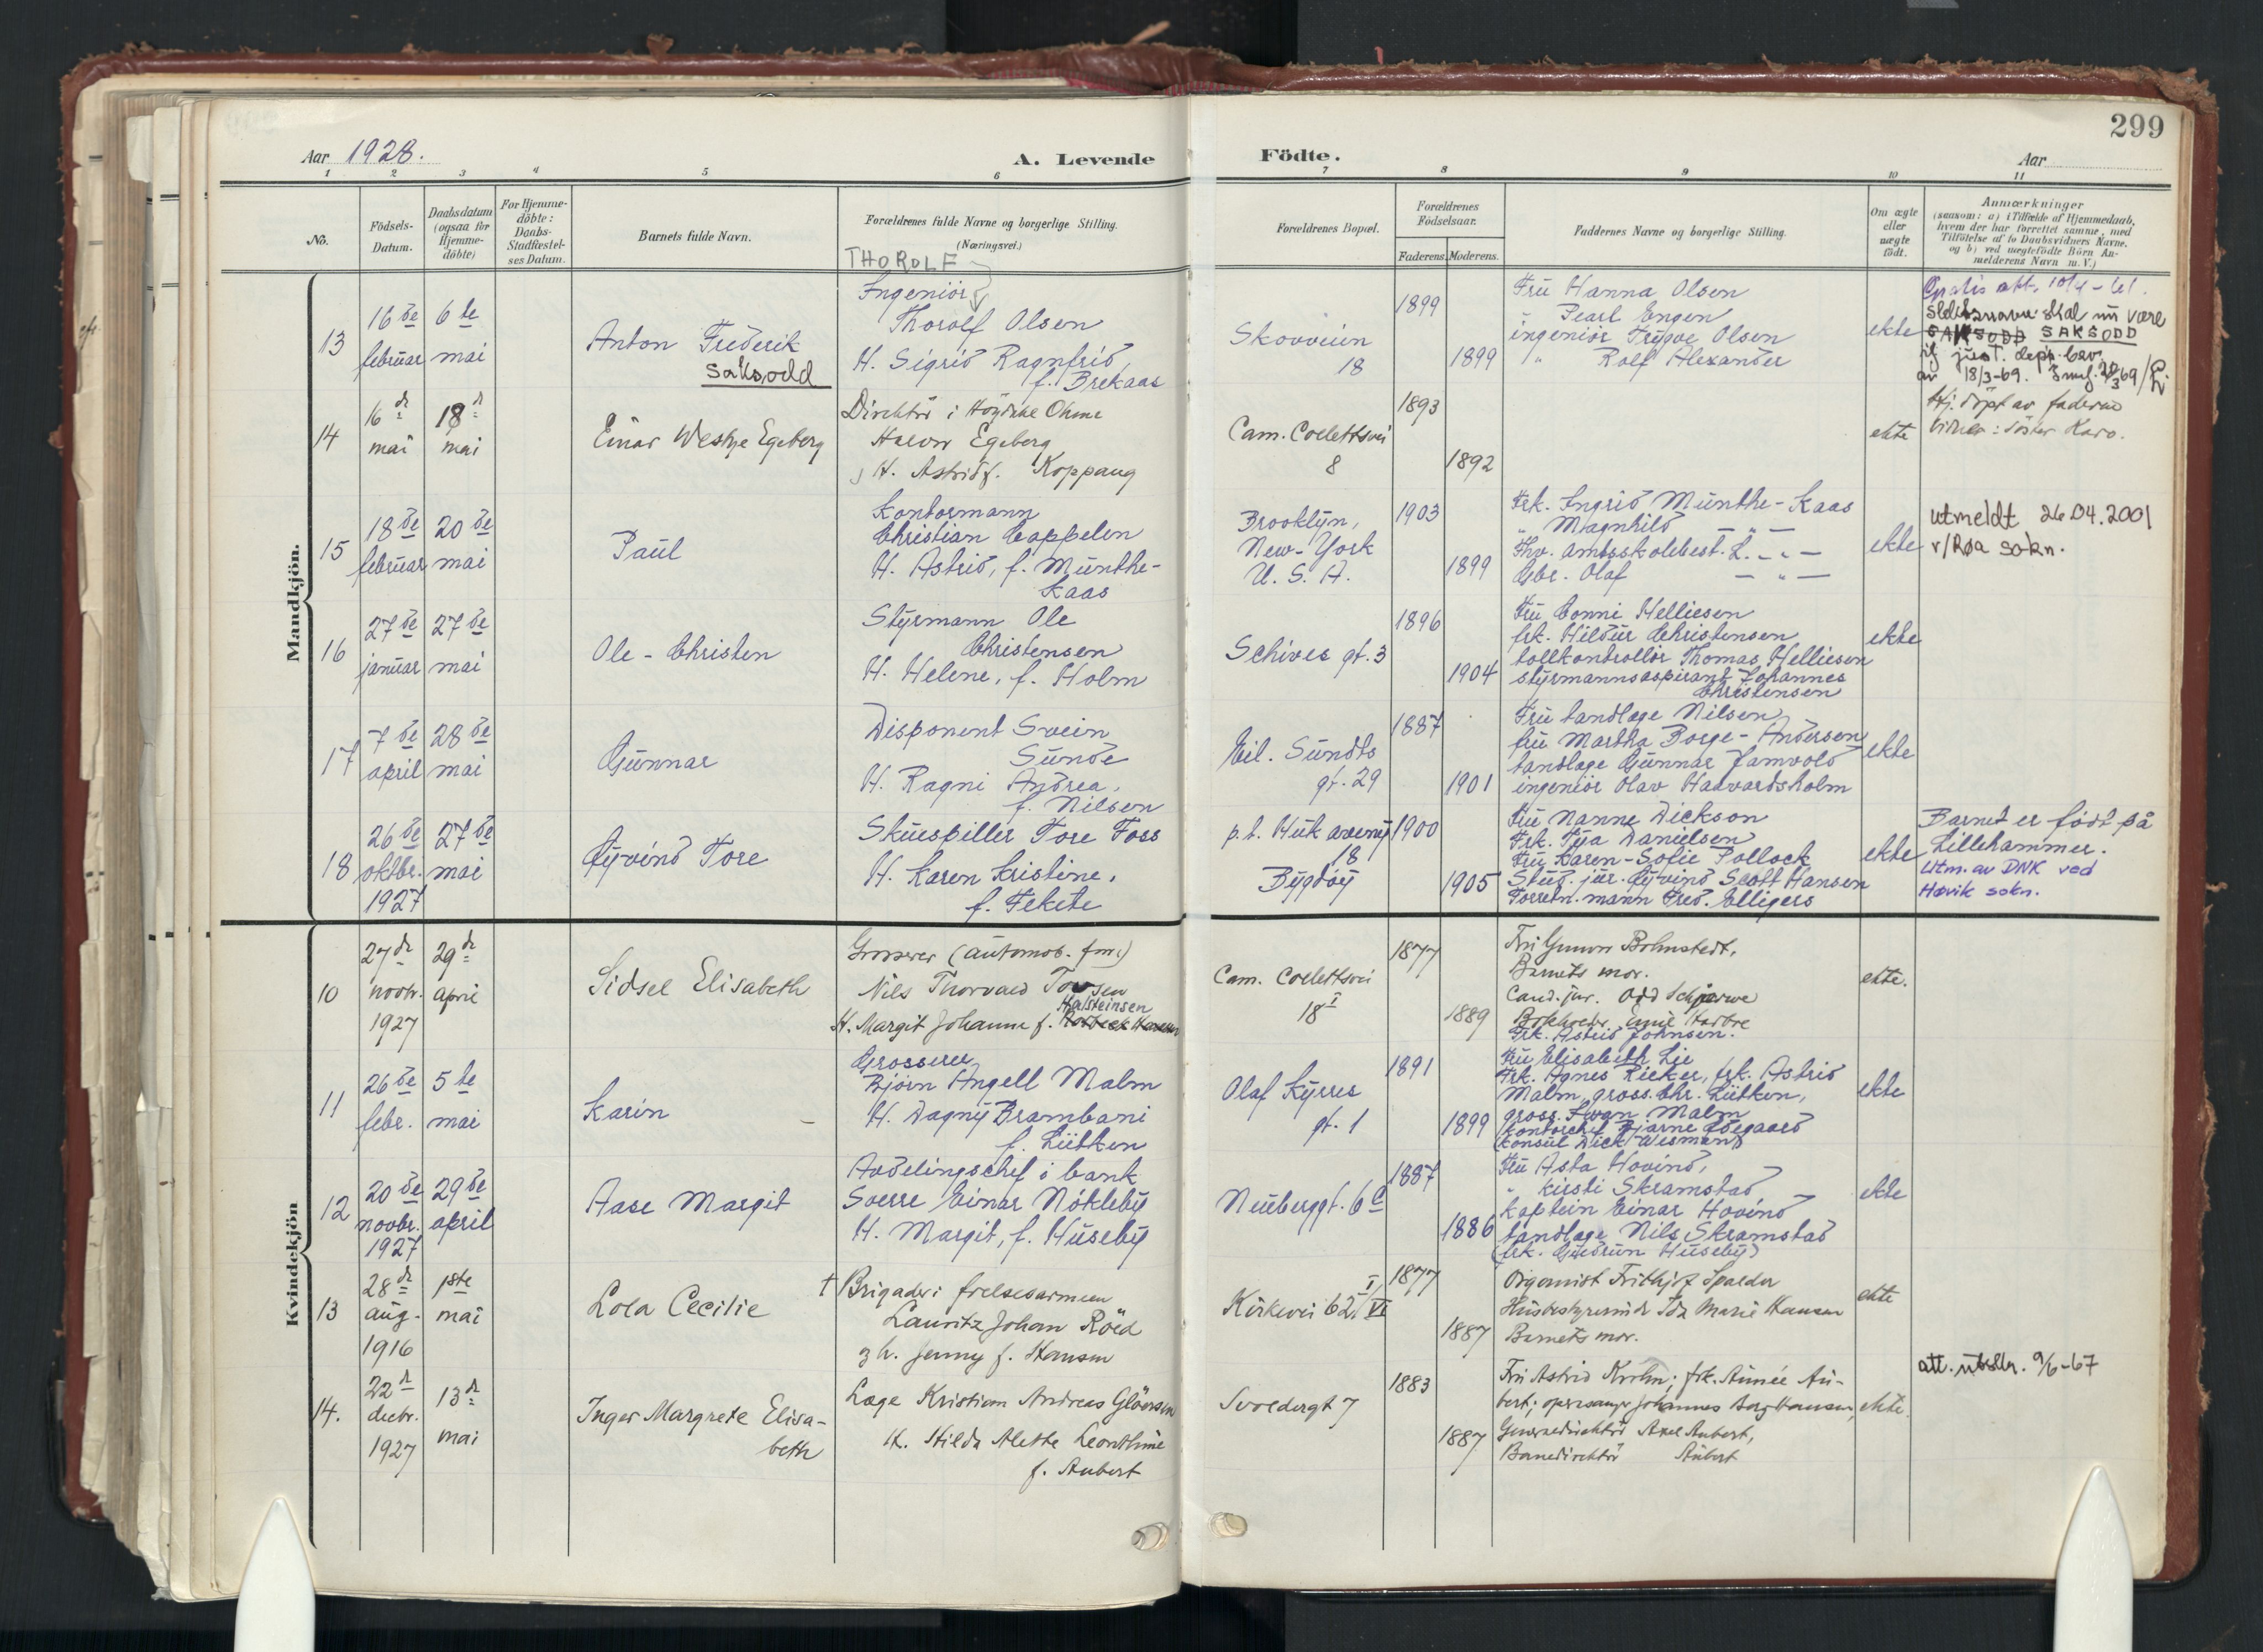 299
Aar 1928.
A. Levende
Födte.
Aar
1 2 3 4 5 6 7 8 9 10 11
No.
Födsels-
Datum.
Daabsdatum
(ogsaa for
Hjemme-
döbte)
For Hjemme-
döbte:
Daabs-
Stadfæstel-
ses Datum.
Barnets fulde Navn.
Forældrenes fulde Navne og borgerlige Stilling.
(Næringsvei.)
Forældrenes Bopæl.
Forældrenes
Födselsaar.
Faderens. Moderens.
Faddernes Navne og borgerlige Stilling.
Om ægte
eller
uægte
födt.
Anmærkninger
(saasom: a) i Tilfælde af Hjemmedaab,
hvem der har forrettet samme, med
Tilföielse af to Daabsvidners Navne,
og b) ved uægtefödte Börn An-
melderens Navn m. V.)
Mandkjön.
13
16de
februar
6te
mai
Anton Frederik
Saksodd
THOROLF
Ingeniör
Thorolf Olsen
H. Sigrid Ragnfrid,
f. Brekaas
Skovveien
18
1899
1899
Fru Hanna Olsen
" Pearl Engen
ingeniör Trygve Olsen
" Rolf Alexander
ekte
Gratis att. 10/4-61.
Slektsnavn skal nu være
SAKSODD SAKSODD
if just. dep. bev.
av 18/3-69.
14
16d
mai
18d
mai
Einar Westye Egeberg
Direktör i Höydahl Ohme
Halvor Egeberg
H. Astrid f. Koppang
Cam. Collettsvei
8
1893
1892
ekte
Hj. döpt av faderen
vitner: söster Karo.
15
18de
februar
20de
mai
Paul
Kontormann
Christian Cappelen
H. Astrid, f. Munthe-
Kaas
Brooklyn,
New-York
U. S. A.
1903
1899
Frk. Ingrid Munthe-Kaas
" Magnhild — " —
Fhv. amtsskolebest. L. — " —
Gbr. Olaf — " —
ekte
utmeldt 26.04.2001
v/Røa sokn.
16
27de
januar
27de
mai
Ole-Christen
Styrmann Ole
Christensen
H. Helene, f. Holm
Schives gt. 3
1896
1904
Fru Conni Helliesen
frk. Hildur Christensen
tollkontrollör Thomas Helliesen
styrmannsaspirant Johannes
Christensen
ekte
17
7de
april
28de
mai
Gunnar
Disponent Svein
Sunde
H. Ragni Andrea,
f. Nilsen
Eil. Sundts
gt. 29
1887
1901
Fru tandlæge Nilsen
fru Martha Borge-Andersen
tandlæge Gunnar Jamvold
ingeniör Olav Haavardsholm
ekte
18
26de
oktbr.
1927
27de
mai
Öyvind Tore
Skuespiller Tore Foss
H. Karen Kristine,
f. Fekete
p.t. Huk aveny
18
Bygdöy
1900
1905
Fru Nanne Dickson
Frk. Tya Danielsen
Fru Karen-Sofie Pollock
Stud. jur. Öyvind Scott Hansen
Forretn.mann Fred. Elligers
ekte
Barnet er födt på
Lillehammer.
Utm. av DNK ved
Høvik sokn.
Kvindekjön
10
27d
novbr.
1927
29d
april
Sidsel Elisabeth
Grosserer (automob. fm.)
Nils Thorvald Torsen
Halsteinsen
H. Margit Johanne f.
Cam. Collettsvei
18 I
1877
1889
Fru Gunvor Bohmstedt,
Barnets mor.
Cand. jur. Odd Schjerwe
Frk. Astrid Johnsen.
ekte.
11
26de
febr.
5te
mai
Karin
Grosserer
Björn Angell Malm
H. Dagny Brambani
f. Lütken
Olaf Kyrres
gt. 1
1891
1899
Fru Elisabeth Lie
Frk. Agnes Ricker, frk. Astrid
Malm, gross. Chr. Lütken,
gross. Ivan Malm
(kontorchef Bjarne Ödegaard
konsul Dick Wesmann)
ekte
12
20de
novbr.
1927
29de
april
Aase Margit
Avdelingschef i bank
Sverre Einar Nökleby
H. Margit, f. Huseby
Neuberggt. 6 c
1887
1886
Fru Asta Hovind,
" Kirsti Skramstad
kaptein Einar Hovind
tandlæge Nils Skramstad
(frk. Gudrun Huseby)
ekte
13
28d
aug.
1916
1ste
mai
Lola Cecilie
† Brigader i frelsesarmeen
Lauritz Johan Röed
g h. Jenny f. Hansen
Kirkevei 62 I/VI
1877
1887
Organist Frithjof Spalder
Husbestyrerinde Ida Marie Hansen
Barnets mor.
ekte
14.
22d
decbr.
1927
13d
mai
Inger Margrete Elisa-
beth
Læge Kristian Andreas Glöersen
H. Hilda Alette Leonthine
f. Aubert
Svoldergt 7
1883
1887
Fru Astrid Krohn; frk. Aimée Au-
bert; operasanger Johannes Berg Hansen,
Generaldirektör Axel Aubert,
Banedirektör Aubert
ekte.
att. utstedt. 9/6-67